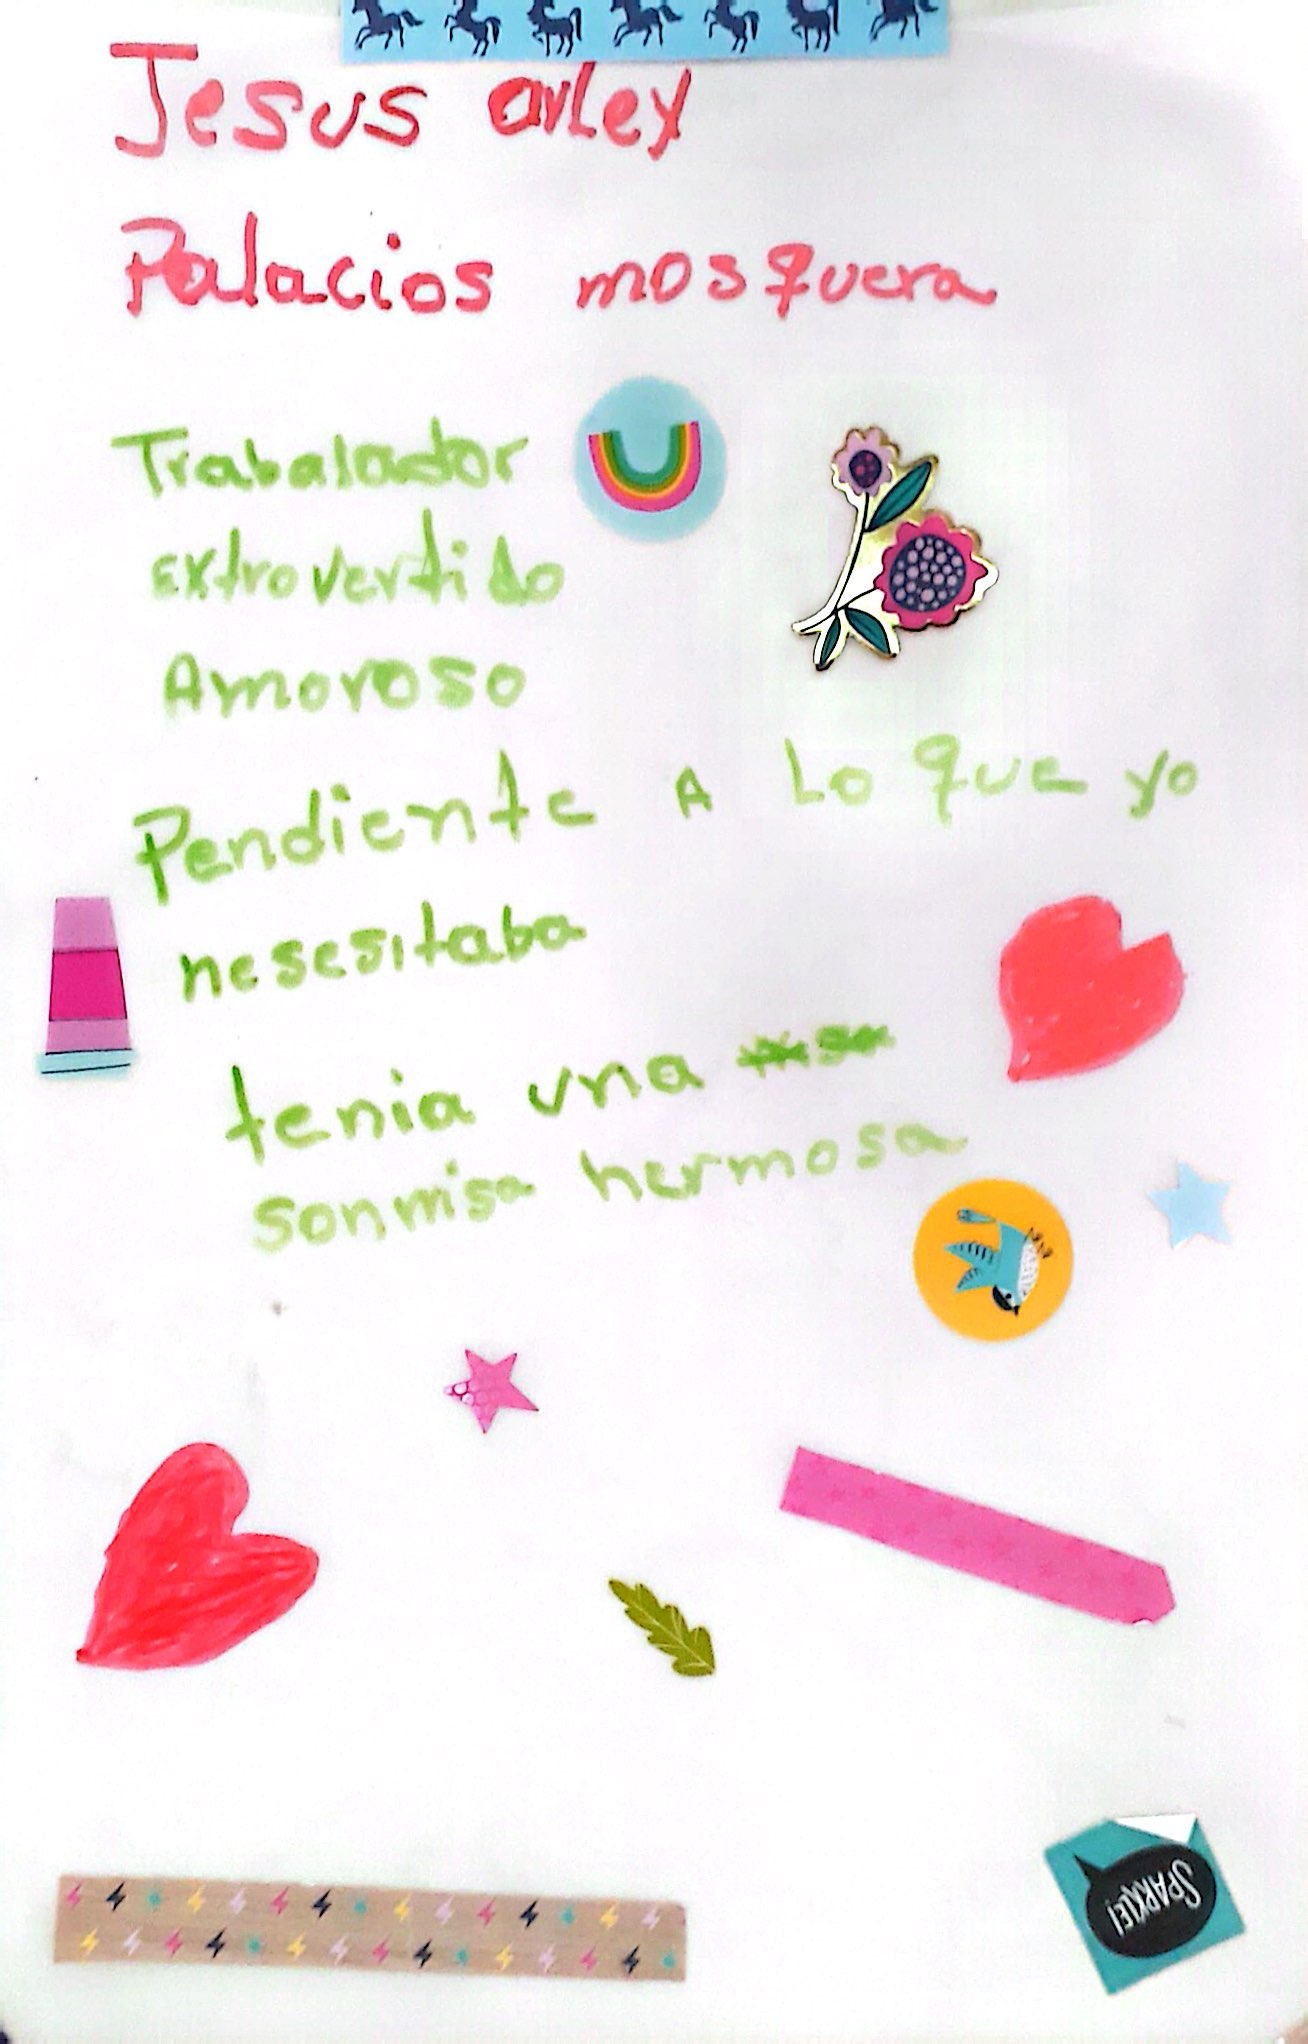 Jesus arley
Palacios mosquera
Trabalador
Extrovertido
Amoroso
Pendiente A Lo que yo
nesesitaba
tenia una
sonrrisa hermosa
SPARKLE!